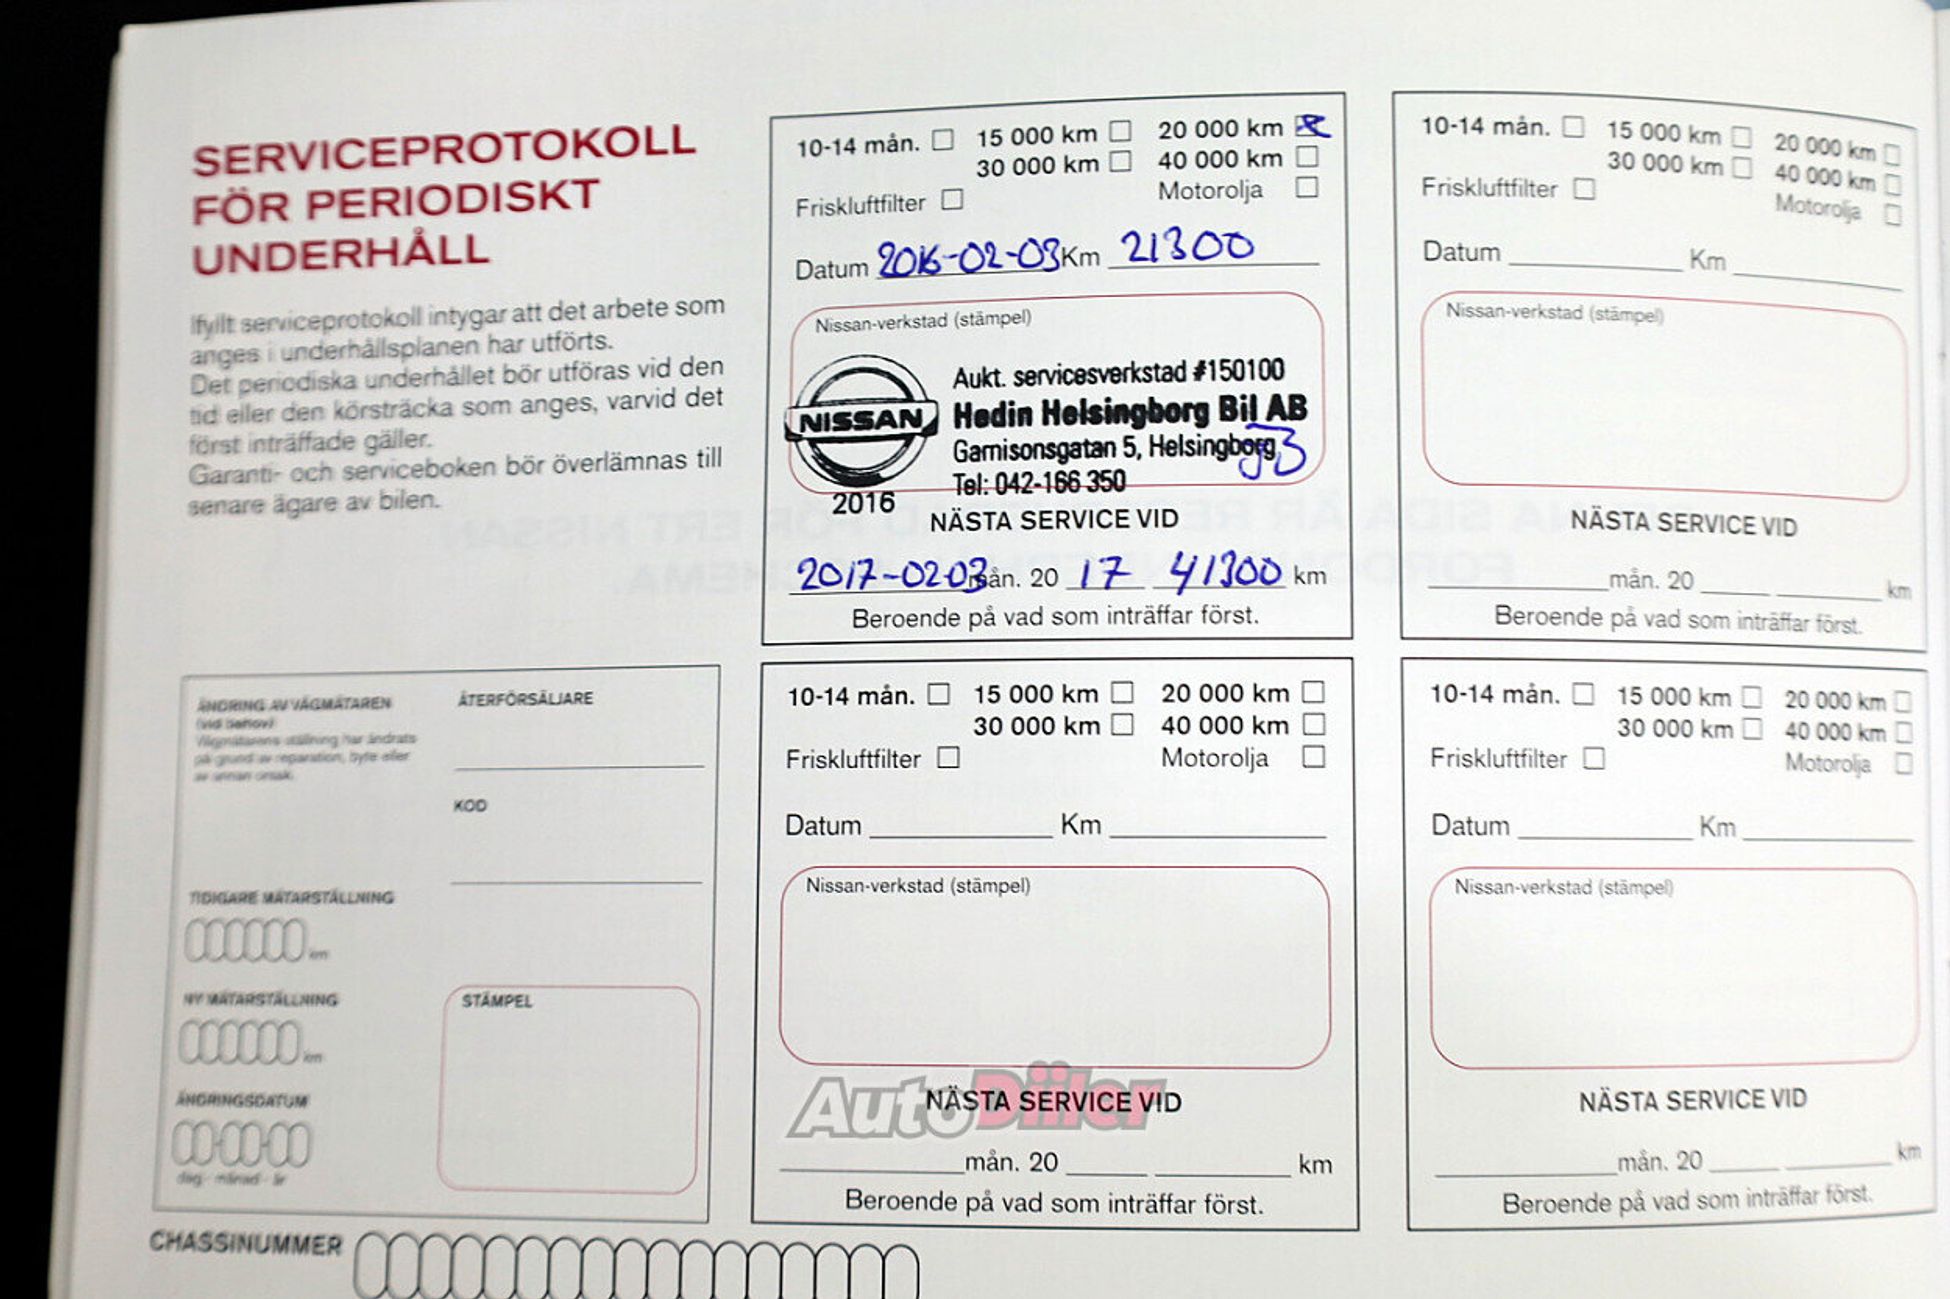 SERVICEPROTOKOLL
FÖR PERIODISKT
UNDERHÅLL
Ifyllt serviceprotokoll intygar att det arbete som
anges i underhållsplanen har utförts.
Det periodiska underhållet bör utföras vid den
tid eller den körsträcka som anges, varvid det
först inträffade gäller.
Garanti- och serviceboken bör överlämnas till
senare ägare av bilen.
ÄNDRING AV VÄGMÄTAREN
(vid behov)
Vägmätarens ställning har ändrats
på grund av reparation, byte eller
av annan orsak.
ÅTERFÖRSÄLJARE
KOD
TIDIGARE MÄTARSTÄLLNING
km
NY MÄTARSTÄLLNING
km
ÄNDRINGSDATUM
dag - månad - år
STÄMPEL
CHASSINUMMER
10-14 mån. 15 000 km 20 000 km
30 000 km 40 000 km
Friskluftfilter Motorolja
Datum 2016-02-03 Km 21300
Nissan-verkstad (stämpel)
NISSAN
2016
Aukt. servicesverkstad #150100
Hedin Helsingborg Bil AB
Garnisonsgatan 5, Helsingborg
Tel: 042-166 350
NÄSTA SERVICE VID
2017-02-03 mån. 20 17 41300 km
Beroende på vad som inträffar först.
10-14 mån. 15 000 km 20 000 km
30 000 km 40 000 km
Friskluftfilter Motorolja
Datum Km
Nissan-verkstad (stämpel)
NÄSTA SERVICE VID
mån. 20 km
Beroende på vad som inträffar först.
10-14 mån. 15 000 km 20 000 km
30 000 km 40 000 km
Friskluftfilter Motorolja
Datum Km
Nissan-verkstad (stämpel)
NÄSTA SERVICE VID
mån. 20 km
Beroende på vad som inträffar först.
10-14 mån. 15 000 km 20 000 km
30 000 km 40 000 km
Friskluftfilter Motorolja
Datum Km
Nissan-verkstad (stämpel)
NÄSTA SERVICE VID
mån. 20 km
Beroende på vad som inträffar först.
AutoDiiler